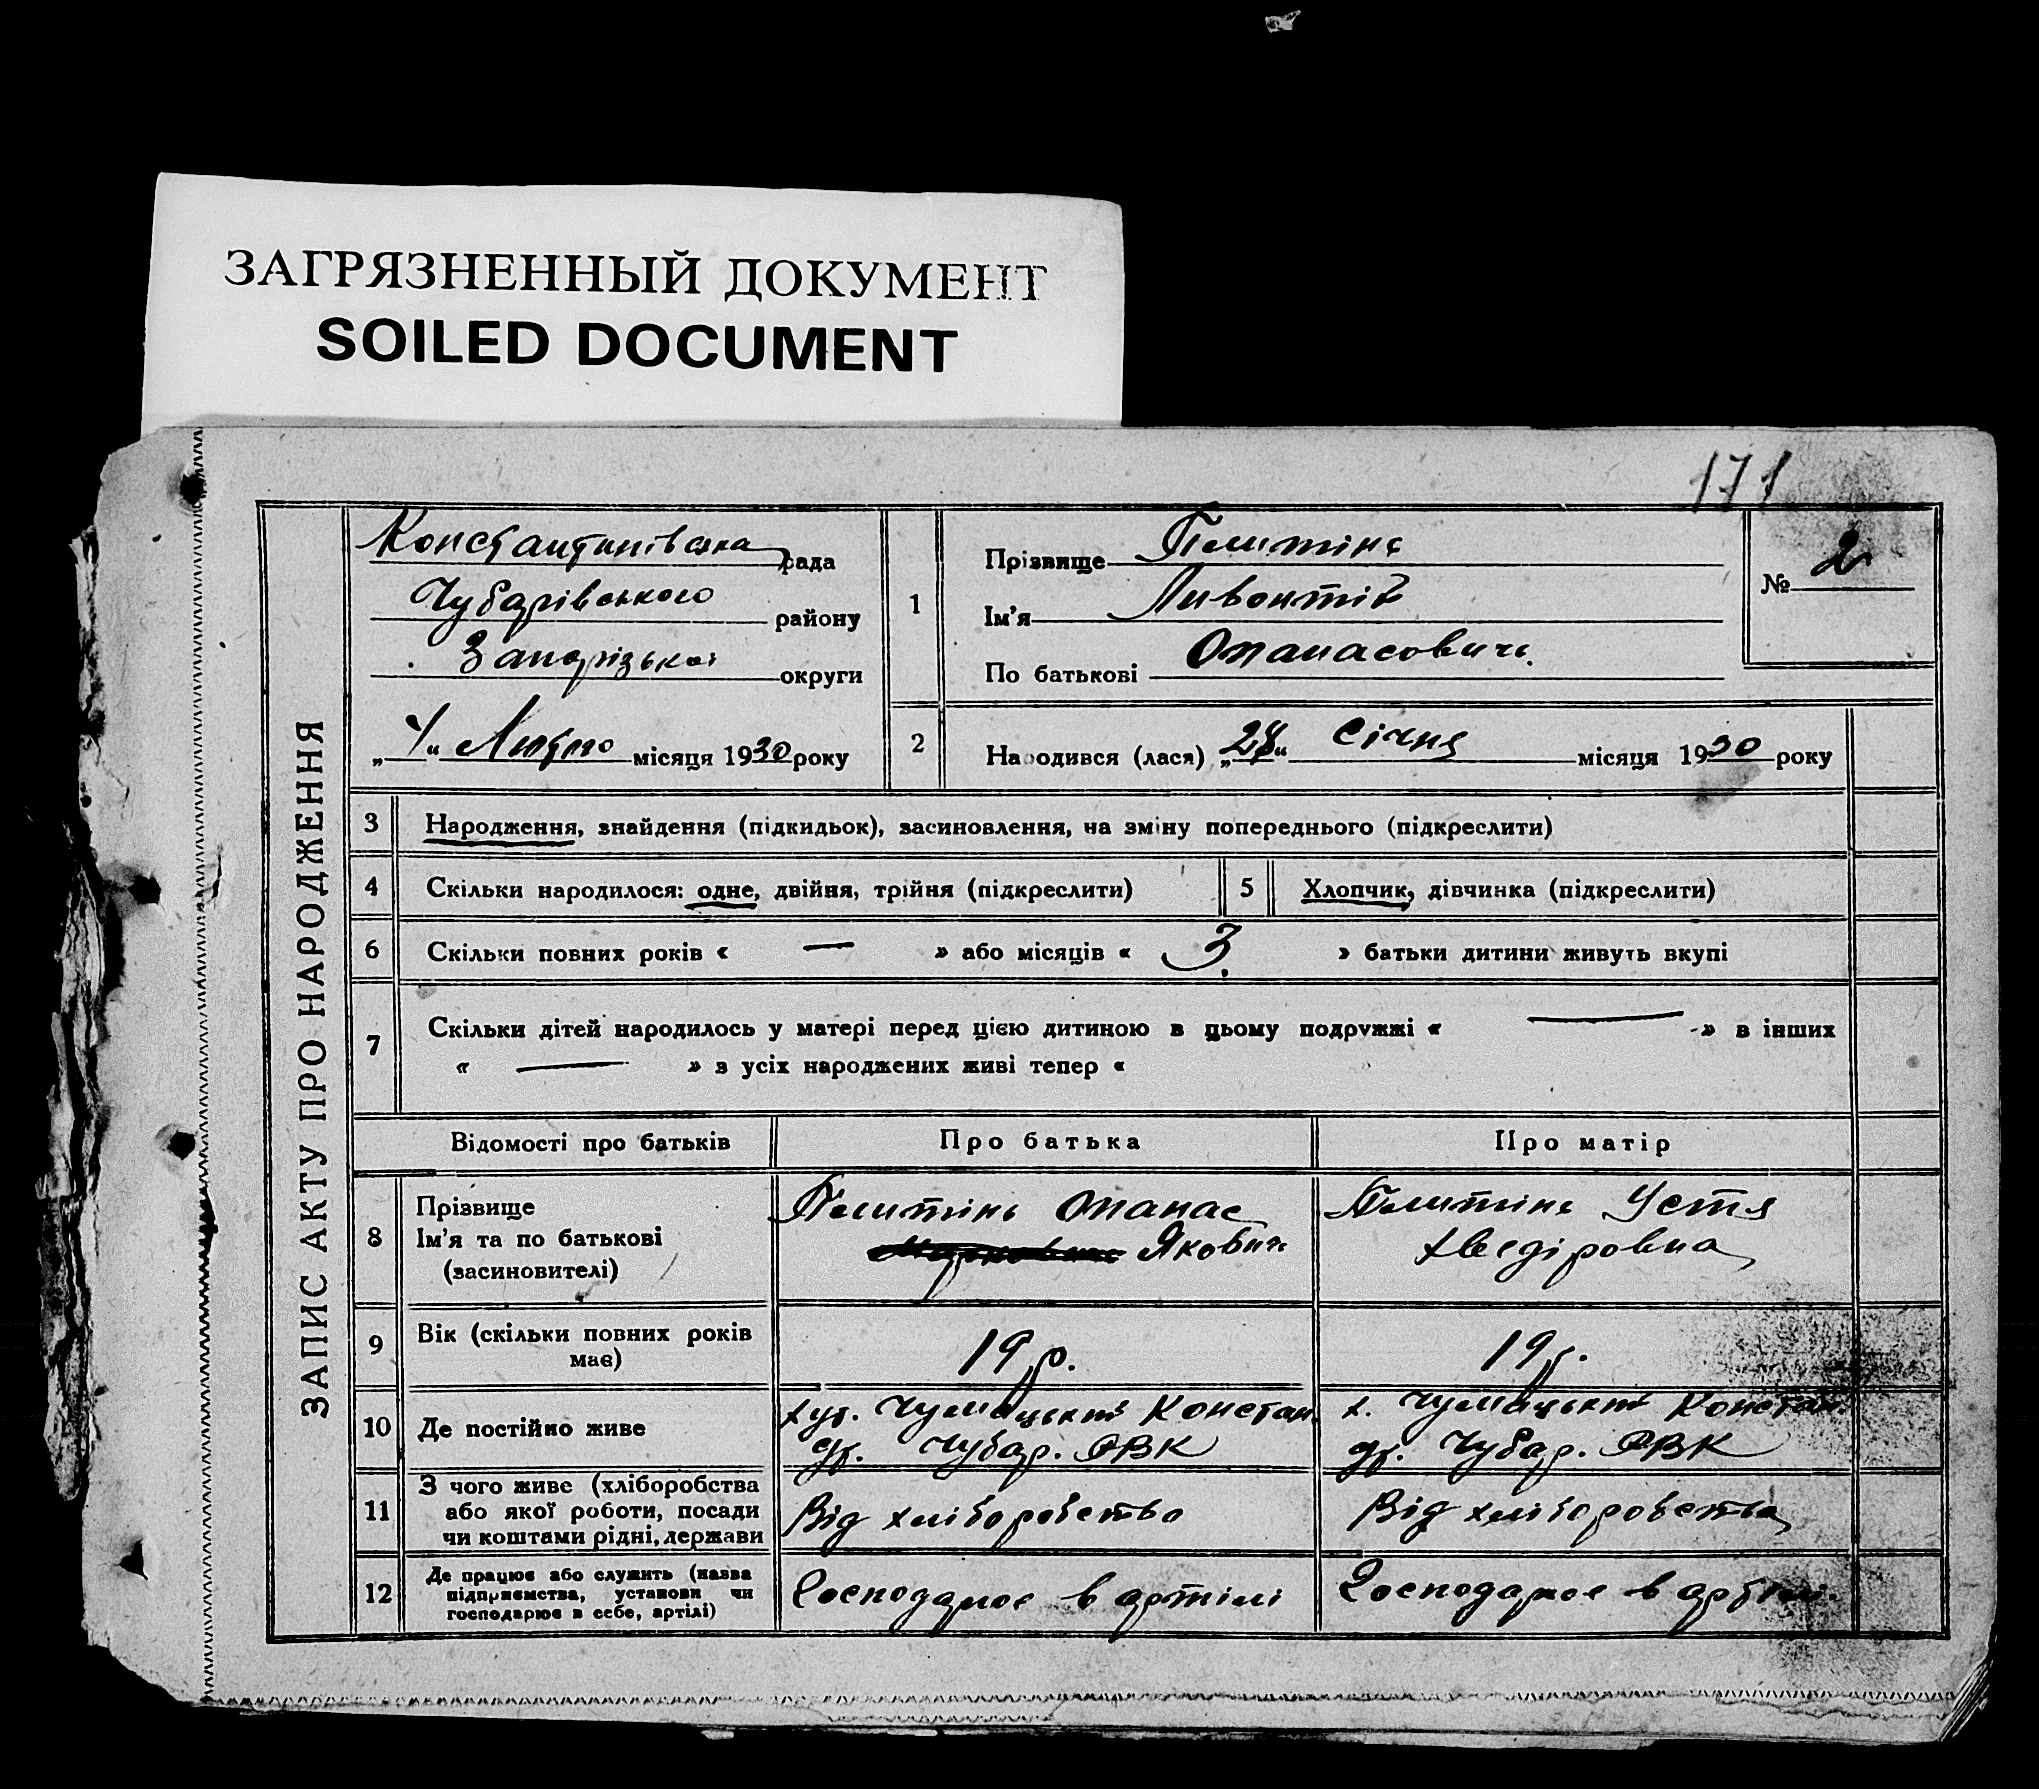 ЗАГРЯЗНЕННЫЙ ДОКУМЕНТ
SOILED DOCUMENT
171
ЗАПИС АКТУ ПРО НАРОДЖЕННЯ
Константинівська рада
Чубарівського району
Запорізької округи
„4“ Лютого місяця 1930 року
1
Прізвище
Ім'я
По батькові Опанасович.
№ 2
2 Народився (лася) „28“ Січня місяця 1930 року
3 Народження, знайдення (підкидьок), засиновлення, на зміну попереднього (підкреслити)
4 Скільки народилося: одне, двійня, трійня (підкреслити)
5 Хлопчик, дівчинка (підкреслити)
6 Скільки повних років « — » або місяців « 3. » батьки дитини живуть вкупі
7 Скільки дітей народилось у матері перед цією дитиною в цьому подружжі « — » в інших
« — » з усіх народжених живі тепер «
Відомості про батьків Про батька Про матір
8 Прізвище
Ім'я та по батькові
(засиновителі)
Опанас
Якович
Устя
Хведіровна
9 Вік (скільки повних років
має)
19 р.
19 р.
10 Де постійно живе
хут. Чумацький Констан.
с/р. Чубар. РВК
х. Чумацький Констан.
с/р. Чубар. РВК
11 З чого живе (хліборобства
або якої роботи, посади
чи коштами рідні, держави
Від хліборобства
Від хліборобства
12 Де працює або служить (назва
підприємства, установи чи
господарює в себе, артілі)
Господарює в артілі
Господарює в артілі.